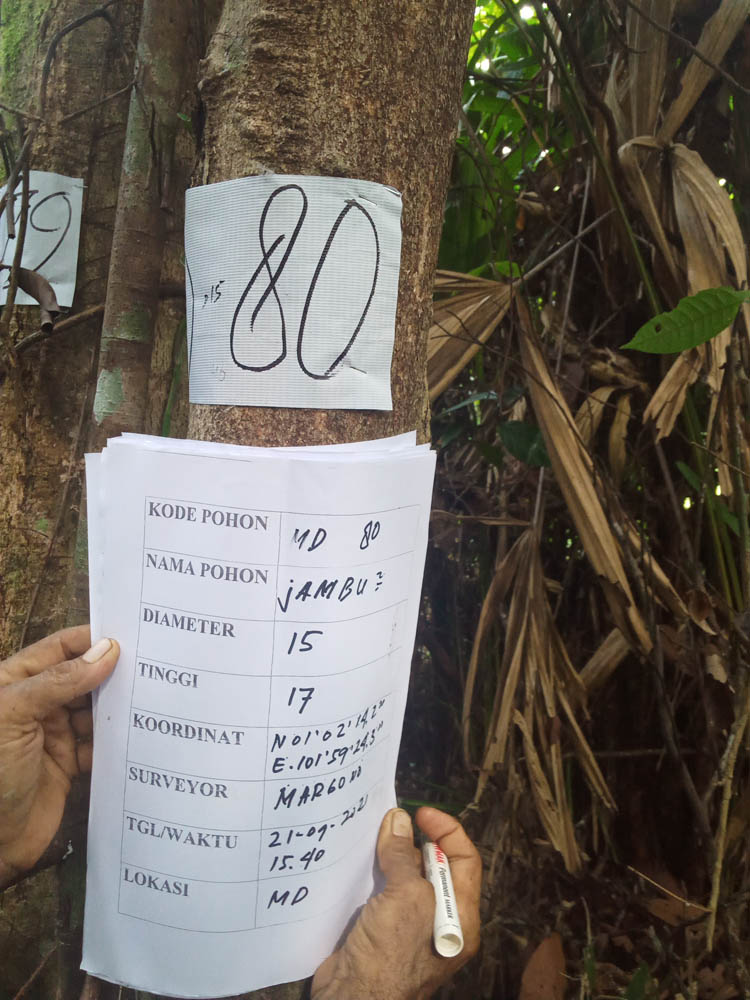 79
80
D15
KODE POHON MD 80
NAMA POHON jAMBU²
DIAMETER 15
TINGGI 17
KOORDINAT N 01'02'14.2"
E.101'59'24.3"
SURVEYOR MARGONO
TGL/WAKTU 21-09-2021
15.40
LOKASI MD
PERMANENT MARKER